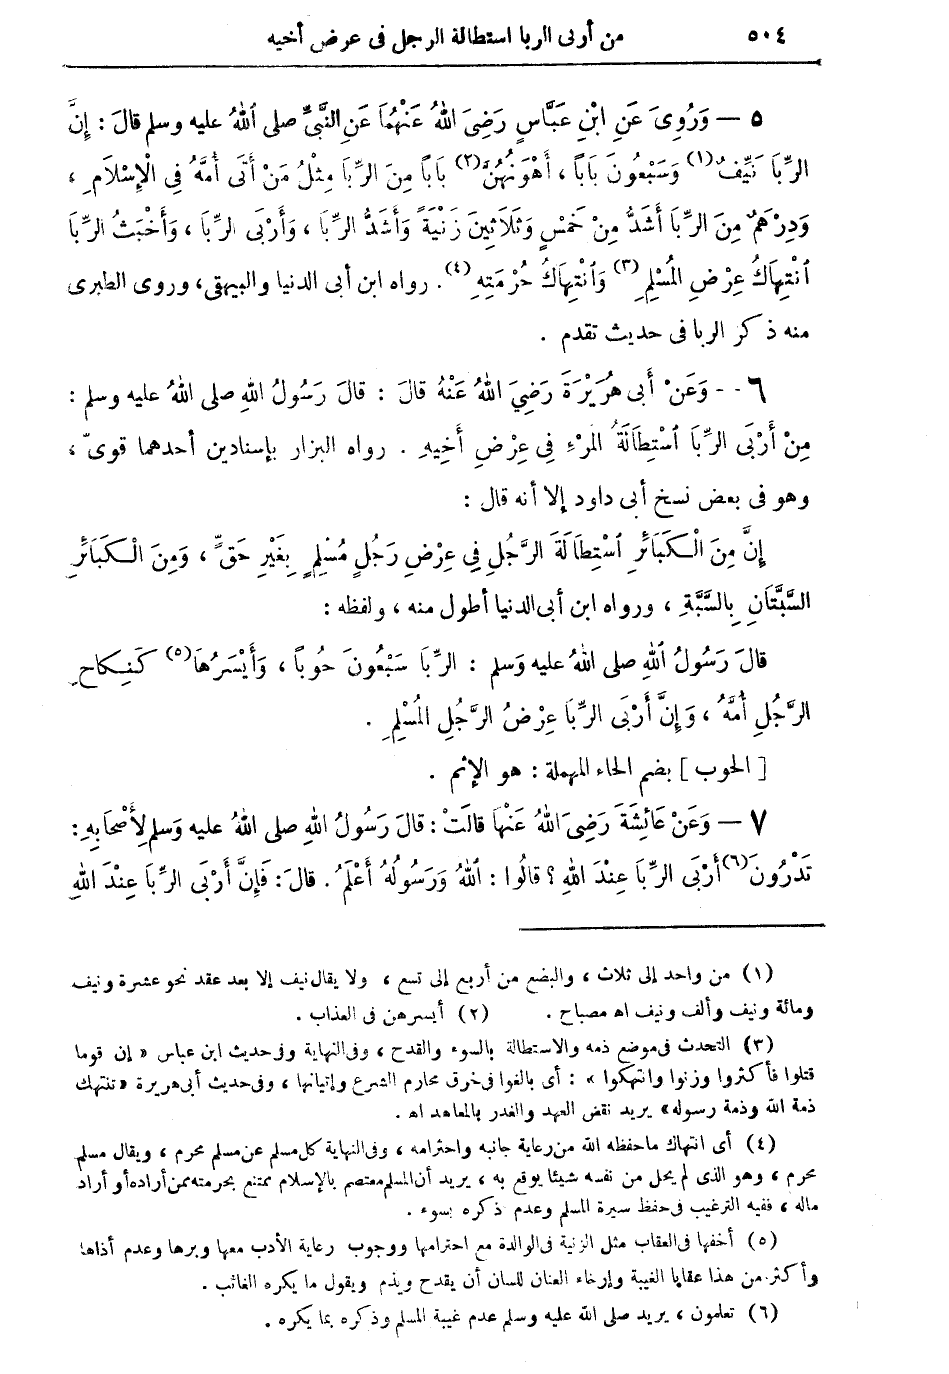 ٥٠٤ من أربى الربا استطالة الرجل فى عرض أخيه
٥ — وَرُوِىَ عَنِ ابْنِ عَبَّاسٍ رَضِىَ اللهُ عَنْهُمَا عَنِ النَّبِىِّ صلى اللهُ عليه وسلم قالَ : إِنَّ
الرِّبَا نَيِّفٌ(١) وَسَبْعُونَ بَاباً ، أَهْوَنُهُنَّ(٢) بَاباً مِنَ الرِّبَا مِثْلُ مَنْ أَتَى أُمَّهُ فِى الْإِسْلَامِ ،
وَدِرْهَمٌ مِنَ الرِّبَا أَشَدُّ مِنْ خَمْسٍ وَثَلَاثِينَ زَنْيَةً وَأَشَدُّ الرِّبَا ، وَأَرْبَى الرِّبَا ، وَأَخْبَثُ الرِّبَا
ٱنْتِهَاكُ عِرْضِ الْمُسْلِمِ(٣) وَٱنْتِهَاكُ حُرْمَتِهِ(٤). رواه ابن أبى الدنيا والبيهقى، وروى الطبرى
منه ذكر الربا فى حديث تقدم .
٦ -- وَعَنْ أَبِى هُرَيْرَةَ رَضِيَ اللهُ عَنْهُ قالَ : قالَ رَسُولُ اللهِ صلى اللهُ عليه وسلم :
مِنْ أَرْبَى الرِّبَا ٱسْتِطَالَةُ الْمَرْءِ فِى عِرْضِ أَخِيهِ . رواه البزار بإسنادين أحدهما قوىّ ،
وهو فى بعض نسخ أبى داود إلا أنه قال :
إِنَّ مِنَ الْكَبَائِرِ ٱسْتِطَالَةَ الرَّجُلِ فِى عِرْضِ رَجُلٍ مُسْلِمٍ بِغَيْرِ حَقٍّ ، وَمِنَ الْكَبَائِرِ
السَّبَّتَانِ بِالسَّبَّةِ ، ورواه ابن أبى الدنيا أطول منه ، ولفظه :
قالَ رَسُولُ اللهِ صلى اللهُ عليه وَسلم : الرِّبَا سَبْعُونَ حُوباً ، وَأَيْسَرُهَا(٥) كَنِكاحِ
الرَّجُلِ أُمَّهُ ، وَإِنَّ أَرْبَى الرِّبَا عِرْضُ الرَّجُلِ الْمُسْلِمِ .
[ الحوب ] بضم الحاء المهملة : هو الإثم .
٧ — وَعَنْ عَائِشَةَ رَضِىَ اللهُ عَنْهَا قالَتْ : قالَ رَسُولُ اللهِ صلى اللهُ عليه وَسلم لِأَصْحَابِهِ :
تَدْرُونَ(٦) أَرْبَى الرِّبَا عِنْدَ اللهِ ؟ قالُوا : اللهُ وَرَسُولُهُ أَعْلَمُ . قالَ : فَإِنَّ أَرْبَى الرِّبَا عِنْدَ اللهِ
(١) من واحد إلى ثلاث ، والبضع من أربع إلى تسع ، ولا يقال نيف إلا بعد عقد نحو عشرة ونيف
ومائة ونيف وألف ونيف اه مصباح . (٢) أيسرهن فى العذاب .
(٣) التحدث فى موضع ذمه والاستطالة بالسوء والقدح ، وفى النهاية وفى حديث ابن عباس « إن قوما
قتلوا فأكثروا وزنوا وانتهكوا » : أى بالغوا فى خرق محارم الشرع وإتيانها ، وفى حديث أبى هريرة « تنتهك
ذمة الله وذمة رسوله» يريد نقض العهد والغدر بالمعاهد اه .
(٤) أى انتهاك ما حفظه الله من رعاية جانبه واحترامه ، وفى النهاية كل مسلم عن مسلم محرم ، ويقال مسلم
محرم ، وهو الذى لم يحل من نفسه شيئا يوقع به ، يريد أن المسلم معتصم بالإسلام ممتنع بحرمته ممن أراده أو أراد
ماله ، ففيه الترغيب فى حفظ سيرة المسلم وعدم ذكره بسوء .
(٥) أخفها فى العقاب مثل الزنية فى الوالدة مع احترامها ووجوب رعاية الأدب معها وبرها وعدم أذاها
وأكثر من هذا عقابا الغيبة وإرخاء العنان للسان أن يقدح ويذم ويقول ما يكره الغائب .
(٦) تعلمون ، يريد صلى الله عليه وسلم عدم غيبة المسلم وذكره بما يكره .